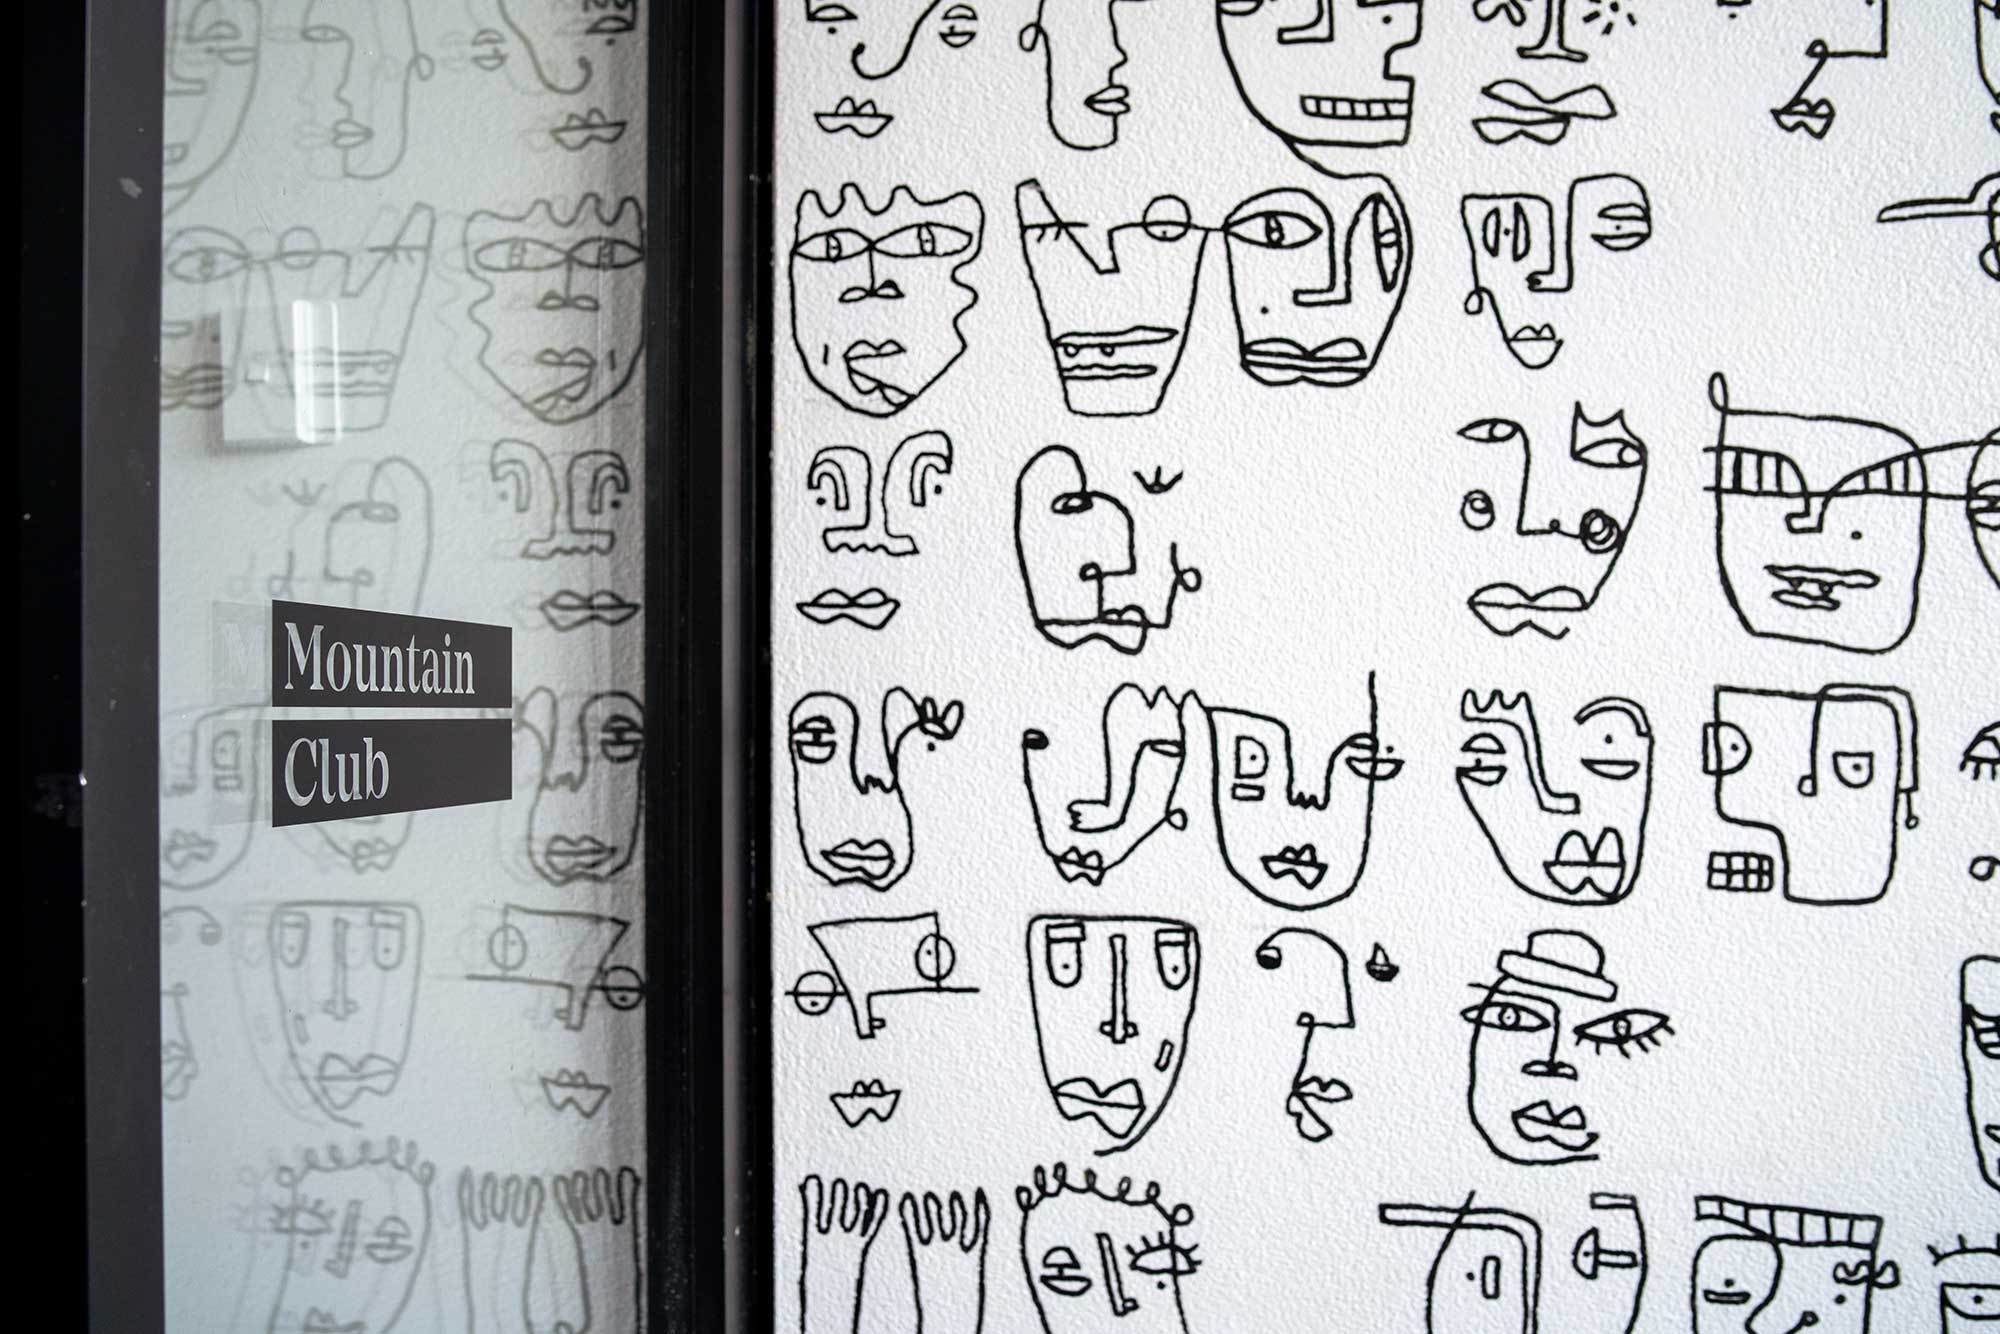 Mountain
Club